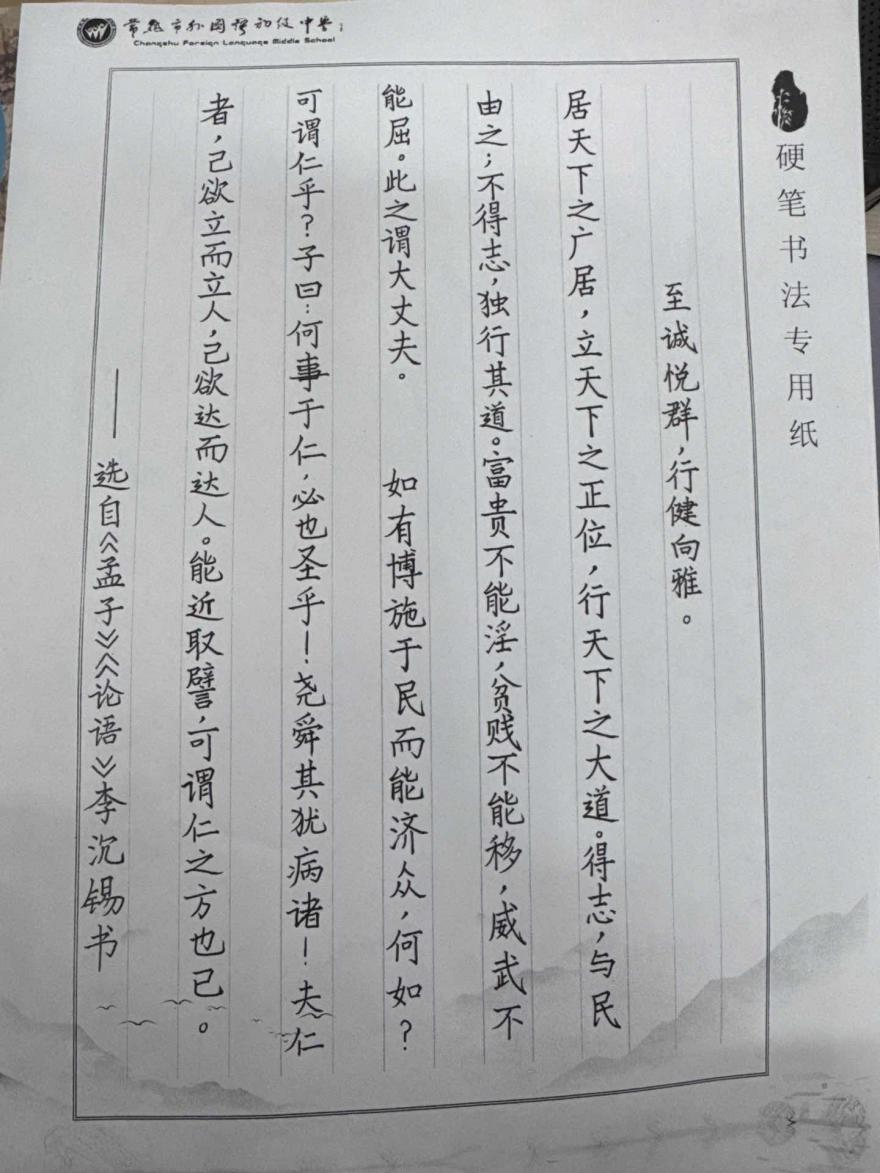 常熟市外国语初级中学
Changshu Foreign Language Middle School
硬笔书法专用纸
至诚悦群，行健向雅。
居天下之广居，立天下之正位，行天下之大道。得志，与民
由之；不得志，独行其道。富贵不能淫，贫贱不能移，威武不
能屈。此之谓大丈夫。 如有博施于民而能济众，何如？
可谓仁乎？子曰：何事于仁，必也圣乎！尧舜其犹病诸！夫仁
者，己欲立而立人，己欲达而达人。能近取譬，可谓仁之方也已。
——选自《孟子》《论语》李沉锡书